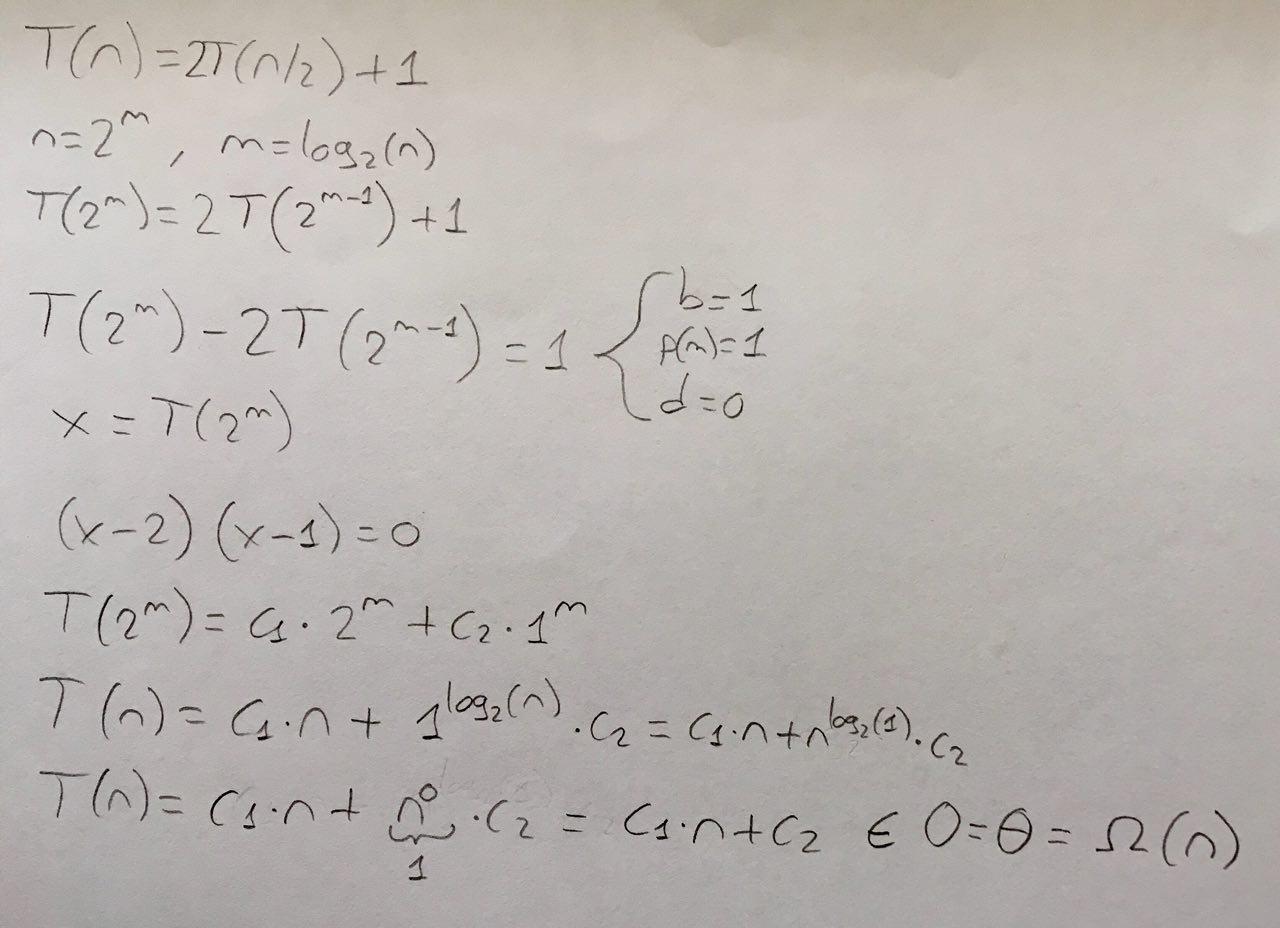 T(n)=2T(n/2)+1
n=2^m, m=log₂(n)
T(2^m)=2T(2^(m-1))+1
T(2^m)-2T(2^(m-1))=1 { b=1
p(m)=1
d=0
x=T(2^m)
(x-2)(x-1)=0
T(2^m)=c₁·2^m+c₂·1^m
T(n)=c₁·n+1^(log₂(n))·c₂=c₁·n+n^(log₂(1))·c₂
T(n)=c₁·n+n^0·c₂=c₁·n+c₂ ∈ O=Θ=Ω(n)
1